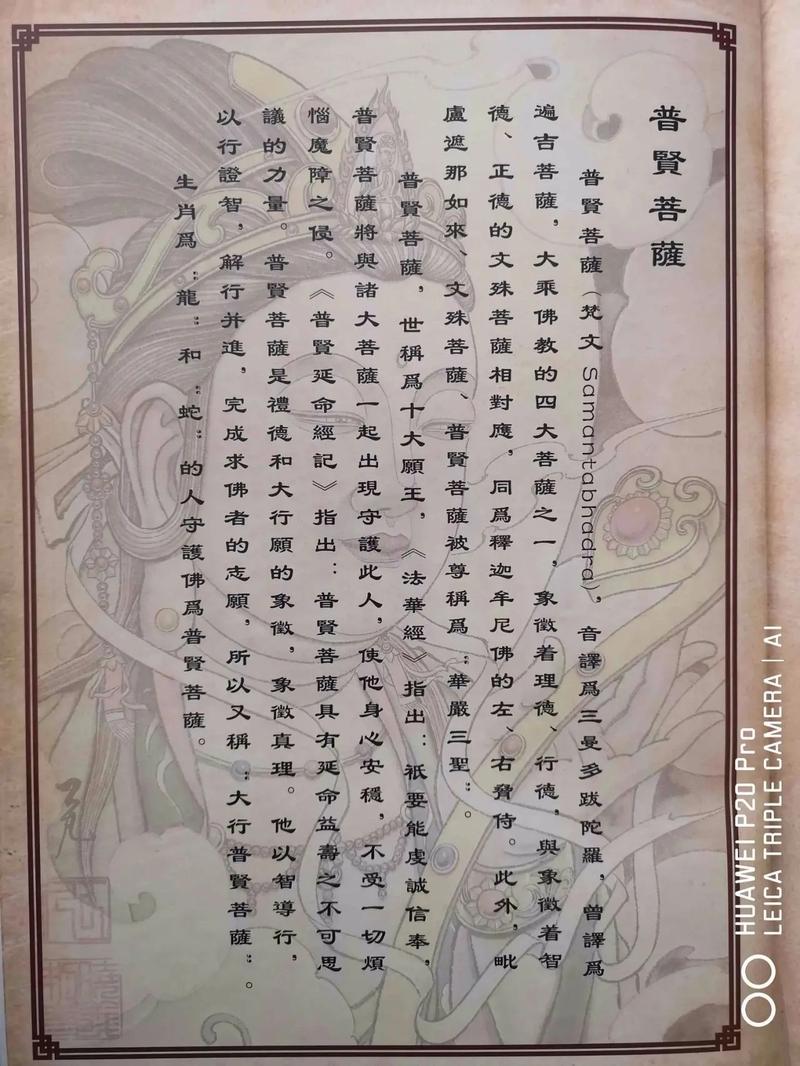 普賢菩薩
普賢菩薩（梵文 Samantabhadra），音譯爲三曼多跋陀羅，曾譯爲
遍吉菩薩，大乘佛教的四大菩薩之一，象徵着理德、行德，與象徵着智
德、正德的文殊菩薩相對應，同爲釋迦牟尼佛的左、右脅侍。此外，毗
盧遮那如來、文殊菩薩、普賢菩薩被尊稱爲“華嚴三聖”。
普賢菩薩，世稱爲十大願王，《法華經》指出：祇要能虔誠信奉，
普賢菩薩將與諸大菩薩一起出現守護此人，使他身心安穩，不受一切煩
惱魔障之侵。《普賢延命經記》指出：普賢菩薩具有延命益壽之不可思
議的力量。普賢菩薩是禮德和大行願的象徵，象徵真理。他以智導行，
以行證智，解行并進，完成求佛者的志願，所以又稱“大行普賢菩薩”。
生肖爲“龍”和“蛇”的人守護佛爲普賢菩薩。
HUAWEI P20 Pro
LEICA TRIPLE CAMERA | AI